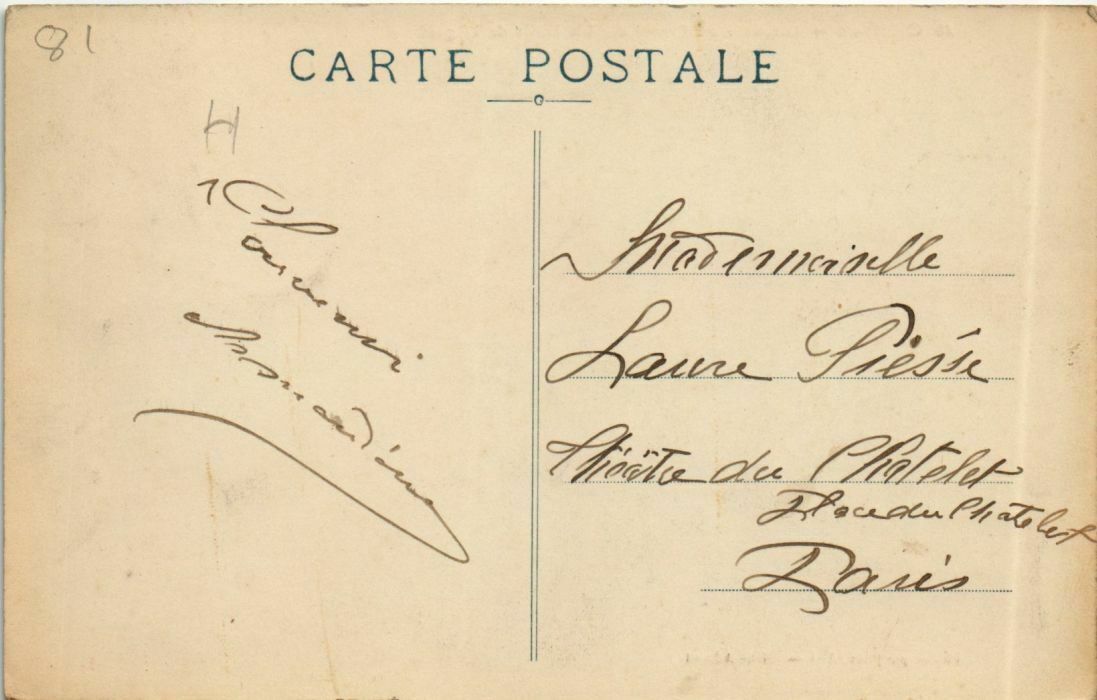 81
CARTE POSTALE
H
Souvenir
Mademoiselle
Laure Piesse
Théâtre du Chatelet
Place du Chatelet
Paris